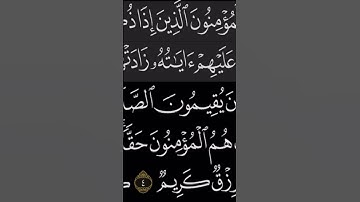 ٱلْمُؤْمِنُونَ ٱلَّذِينَ إِذَا ذُ
عَلَيْهِمْ ءَايَٰتُهُۥ زَادَتْ
نَ يُقِيمُونَ ٱلصَّ
هُمُ ٱلْمُؤْمِنُونَ حَقًّا
رِزْقٌ كَرِيمٌ ٤